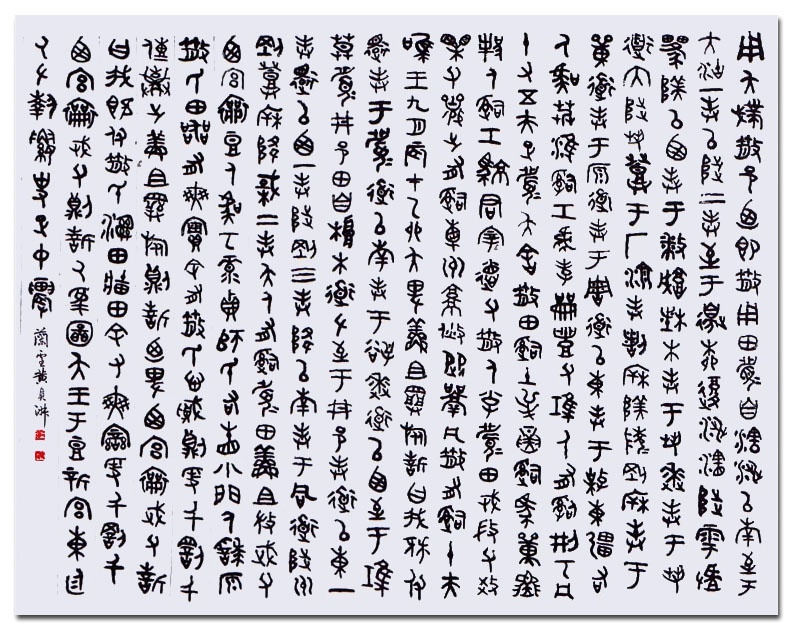 用夨散邑乃即散用田眉自瀗涉以南至于
大沽一封以陟二封至于邊柳復涉瀗陟雩
以西封于播城楮木封于芻逨封于芻
道内陟芻登于厂湶封割柝陵剛柝封于
道封于原道封于周道以東封于東疆右
人虞艿淮司工虎孝龠豐父堆人有司刑丂凡
十又五夫正眉夨舍散田司土屰寅司馬單
邦人司工君宰德父散人小子眉田戎微父效
果父襄之有司橐州就焂從凡散有司十夫
唯王九月辰才乙卯夨卑鮮且旅誓曰我既付
還封于眉道以南封于逨道以西至于堆
莫眉井邑田自根木道左至于井邑封道以東一
封還以西一封陟剛三封降以南封于同道陟州
剛登柝降棫二封夨人有司眉田鮮且微武父
西宮襄豆人虞丂彔貞師氏右眚小門人繇原
散氏田器有爽實余有散氏心賊則爰千罰千
傳棄之鮮且旅則誓乃卑西宮襄武父誓
曰我既付散氏濕田牆田余有爽變爰千罰千
西宮襄武父則誓厥受圖夨王于豆新宮東廷
厥左執史正中農
蘭雲黃貞